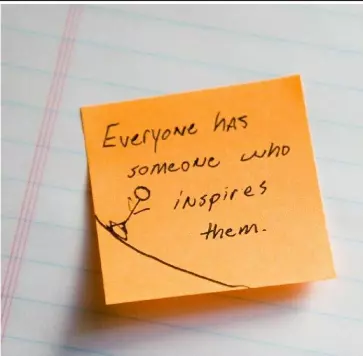 Everyone has
someone who
inspires
them.